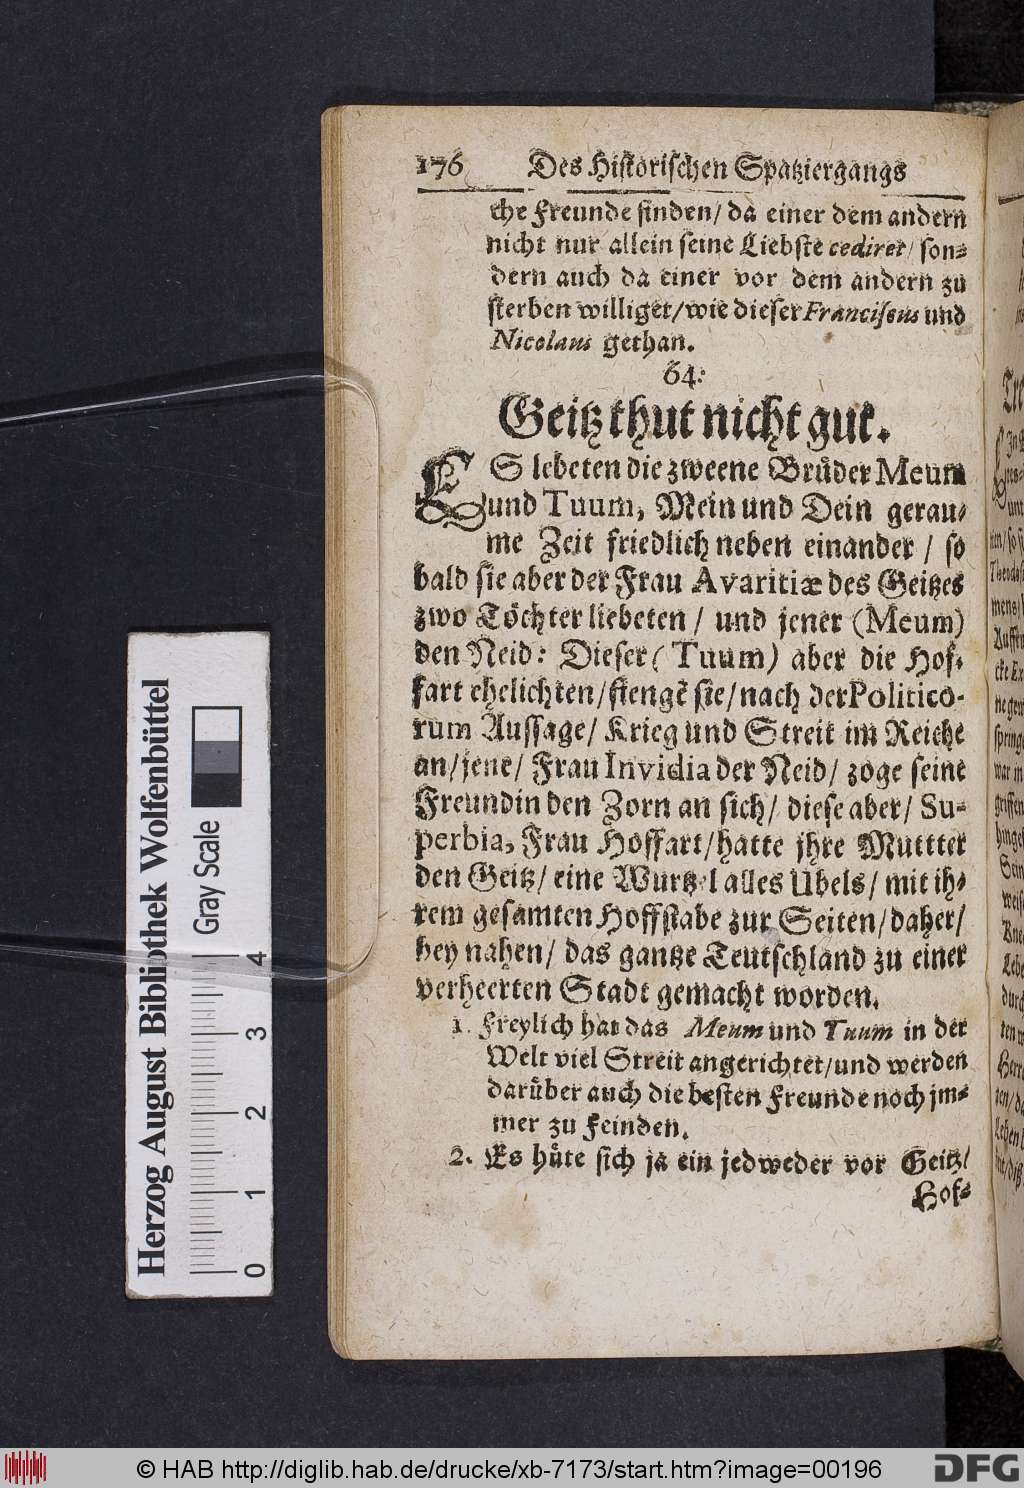 176 Des Historischen Spatziergangs
che Freunde finden/ da einer dem andern
nicht nur allein seine Liebste cediret/ son⸗
dern auch da einer vor dem andern zu
sterben williget/wie dieser Franciscus und
Nicolaus gethan.
64:
Geitz thut nicht gut.
ES lebeten die zweene Bruͤder Meum
und Tuum, Mein und Dein gerau⸗
me Zeit friedlich neben einander / so
bald sie aber der Frau Avaritiæ des Geitzes
zwo Toͤchter liebeten / und jener (Meum)
den Neid: Dieser (Tuum) aber die Hof⸗
fart ehelichten/fiengē sie/nach der Politico-
rum Aussage/ Krieg und Streit im Reiche
an/jene/ Frau Invidia der Neid/ zoge seine
Freundin den Zorn an sich/ diese aber/ Su-
perbia, Frau Hoffart/hatte jhre Muttter
den Geitz/ eine Wurtzel alles Übels/ mit ih⸗
rem gesamten Hoffstabe zur Seiten/daher/
bey nahen/ das gantze Teutschland zu einer
verheerten Stadt gemacht worden.
1. Freylich hat das Meum und Tuum in der
Welt viel Streit angerichtet/und werden
daruͤber auch die besten Freunde noch jm⸗
mer zu Feinden.
2. Es huͤte sich ja ein jedweder vor Geitz/
Hof⸗
Herzog August Bibliothek Wolfenbüttel
Gray Scale
0 1 2 3 4
© HAB http://diglib.hab.de/drucke/xb-7173/start.htm?image=00196
DFG